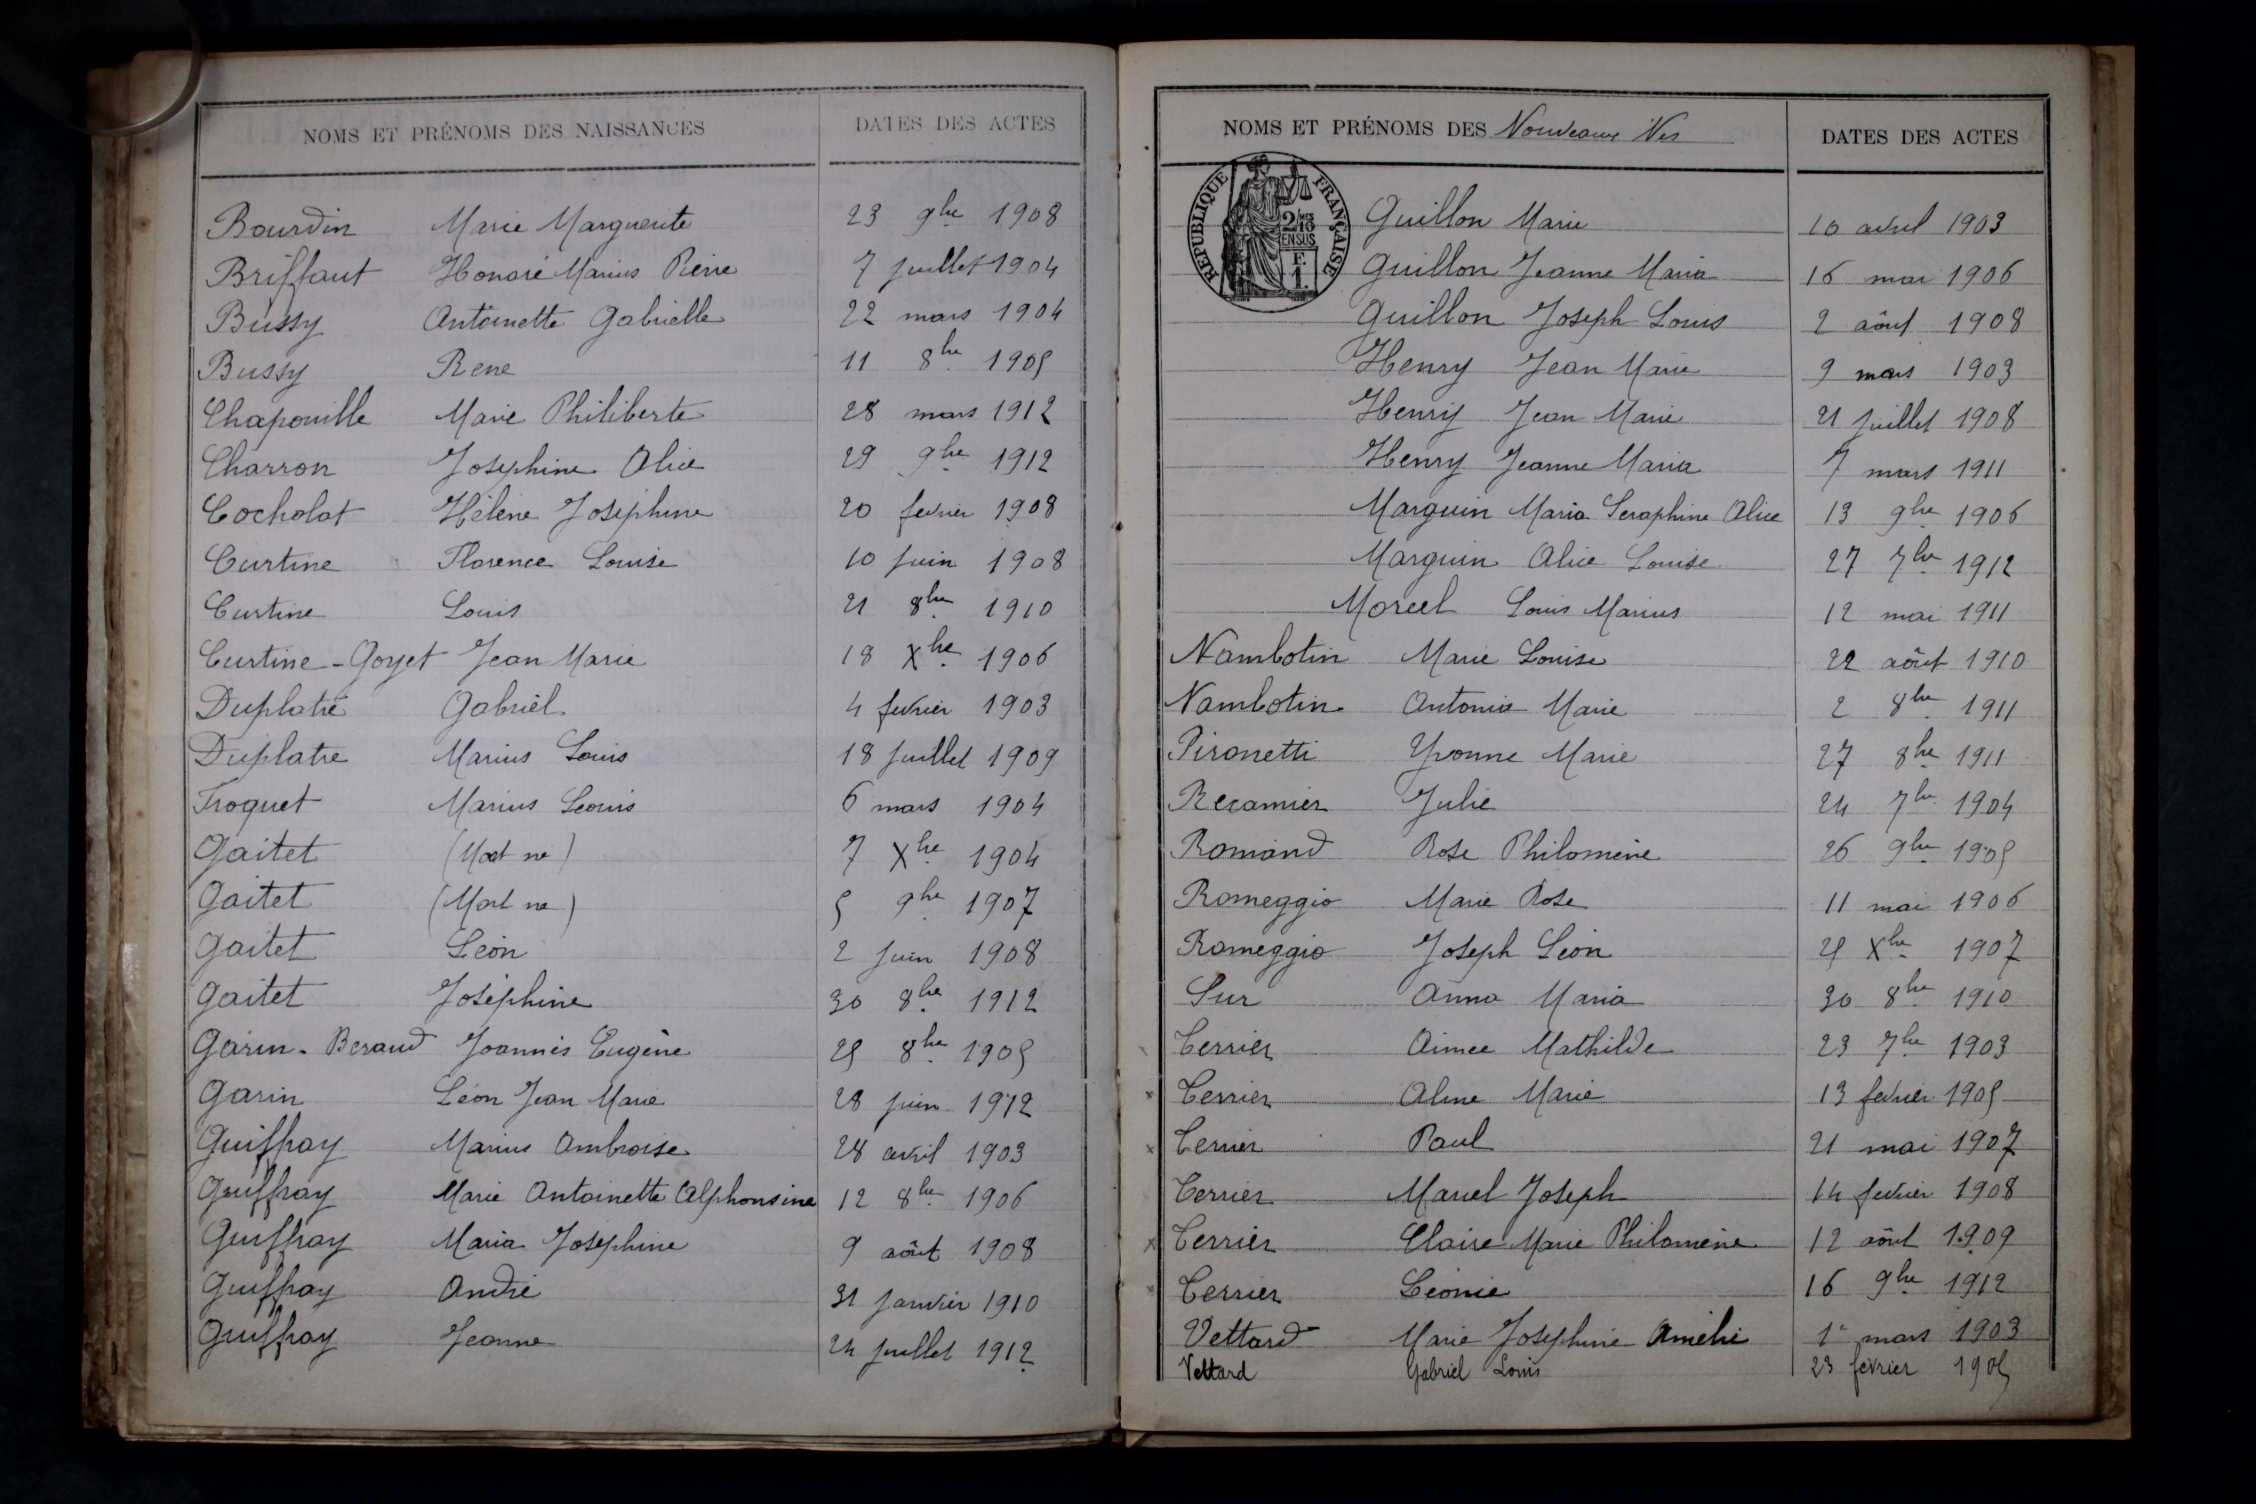 NOMS ET PRÉNOMS DES NAISSANCES DATES DES ACTES
Bourdin Marie Marguerite 23 9bre 1908
Briffaut Honoré Marius Pierre 7 juillet 1904
Bussy Antoinette Gabrielle 22 mars 1904
Bussy Rene 11 8bre 1905
Chapouille Marie Philiberte 28 mars 1912
Charron Josephine Alice 29 9bre 1912
Cocholat Hélène Joséphine 20 fevrier 1908
Curtine Florence Louise 10 juin 1908
Curtine Louis 21 8bre 1910
Curtine-Goyet Jean Marie 18 Xbre 1906
Duplatre Gabriel 4 fevrier 1903
Duplatre Marius Louis 18 juillet 1909
Froquet Marius Leonis 6 mars 1904
Gaitet (Mort ne) 7 Xbre 1904
Gaitet (Mort ne) 5 9bre 1907
Gaitet Léon 2 juin 1908
Gaitet Joséphine 30 8bre 1912
Garin-Beraud Joannès Eugène 25 8bre 1905
Garin Léon Jean Marie 28 juin 1912
Guiffray Marius Ambroise 28 avril 1903
Guiffray Marie Antoinette Alphonsine 12 8bre 1906
Guiffray Maria Joséphine 9 aôut 1908
Guiffray André 31 janvier 1910
Guiffray Jeanne 24 juillet 1912
NOMS ET PRÉNOMS DES Nouveaux Nes DATES DES ACTES
RÉPUBLIQUE FRANÇAISE
2/10mes
EN SUS
F.
1.
Guillon Marie 10 avril 1903
Guillon Jeanne Maria 16 mai 1906
Guillon Joseph Louis 2 aôut 1908
Henry Jean Marie 9 mars 1903
Henry Jean Marie 21 juillet 1908
Henry Jeanne Maria 7 mars 1911
Marguin Maria Seraphine Alice 13 9bre 1906
Marguin Alice Louise 27 7bre 1912
Morcel Louis Marius 12 mai 1911
Nambotin Marie Louise 22 aôut 1910
Nambotin Antonia Marie 2 8bre 1911
Pironetti Yvonne Marie 27 8bre 1911
Recamier Julie 24 7bre 1904
Romand Rose Philomène 26 9bre 1905
Romeggio Marie Rose 11 mai 1906
Romeggio Joseph Léon 25 Xbre 1907
Sur Anna Maria 30 8bre 1910
Terrier Aimee Mathilde 23 7bre 1903
x Terrier Aline Marie 13 fevrier 1905
x Terrier Paul 21 mai 1907
Terrier Marcel Joseph 14 fevrier 1908
x Terrier Claire Marie Philomène 12 aôut 1909
x Terrier Léonie 16 9bre 1912
Vettard Marie Joséphine Amélie 1er mars 1903
Vettard Gabriel Louis 23 février 1905